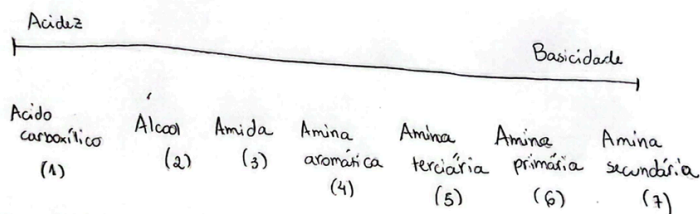 Acidez
Basicidade
Acido
carboxílico
(1)
Álcool
(2)
Amida
(3)
Amina
aromática
(4)
Amina
terciária
(5)
Amina
primária
(6)
Amina
secundária
(7)